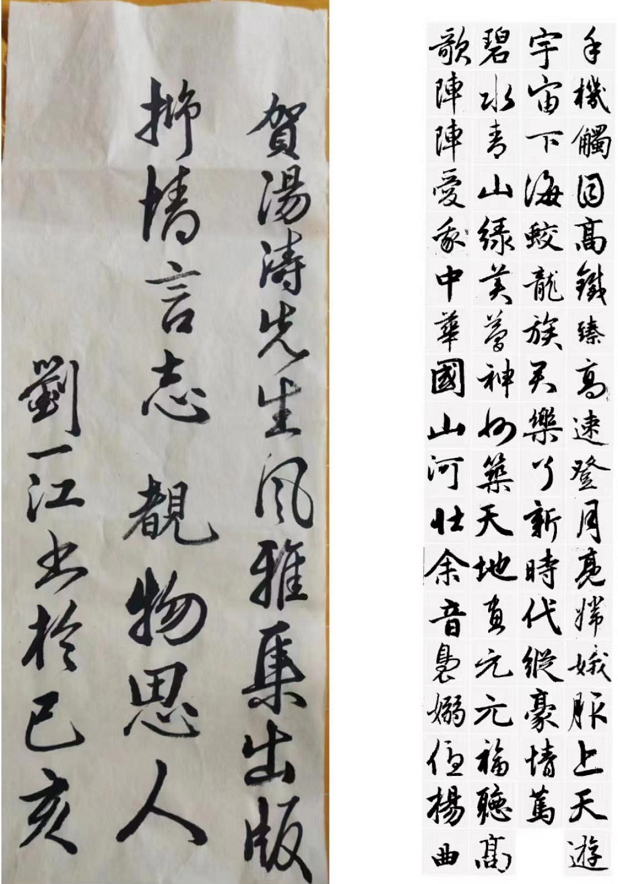 賀湯濤先生风雅集出版
抒情言志 覩物思人
劉一江书於己亥
手機觸目高鐵臻高速登月亮嫦娥上天遊
宇宙下海蛟龍族樂丫新時代縱豪情萬
碧水青山緑美夢神州築天地元元福聽高
歌陣陣愛我中華國山河壯余音裊嫋楊曲